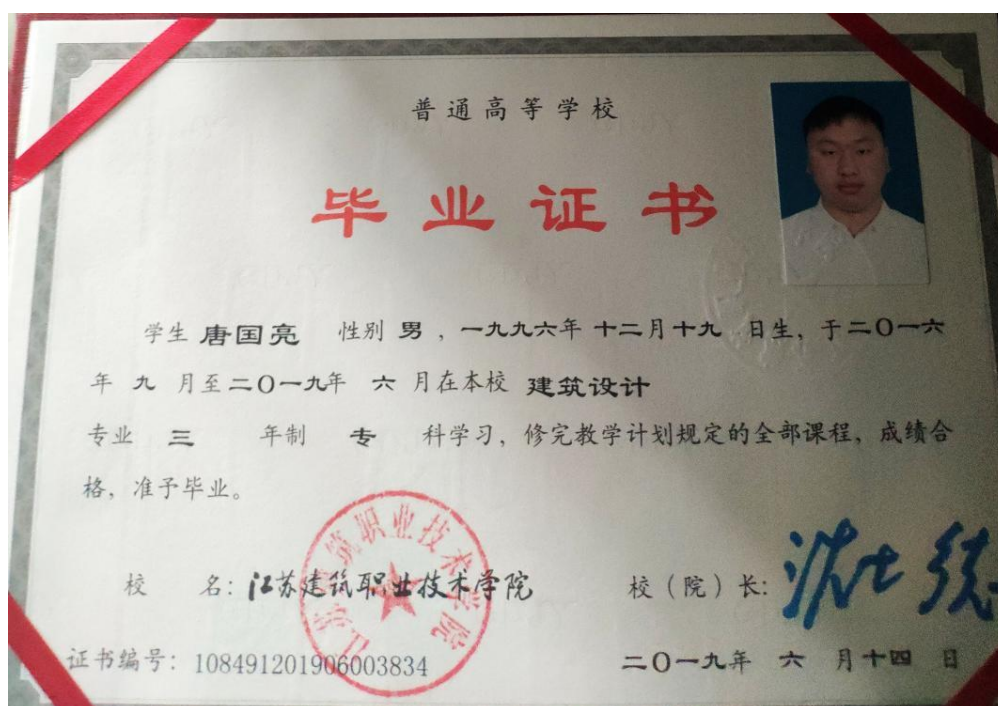 普通高等学校
毕业证书
学生 唐国亮 性别 男，一九九六年 十二月十九 日生，于二〇一六
年 九 月至二〇一九年 六 月在本校 建筑设计
专业 三 年制 专 科学习，修完教学计划规定的全部课程，成绩合
格，准予毕业。
江苏建筑职业技术学院
校 名：江苏建筑职业技术学院 校（院）长：
证书编号：108491201906003834 二〇一九年 六 月十四 日